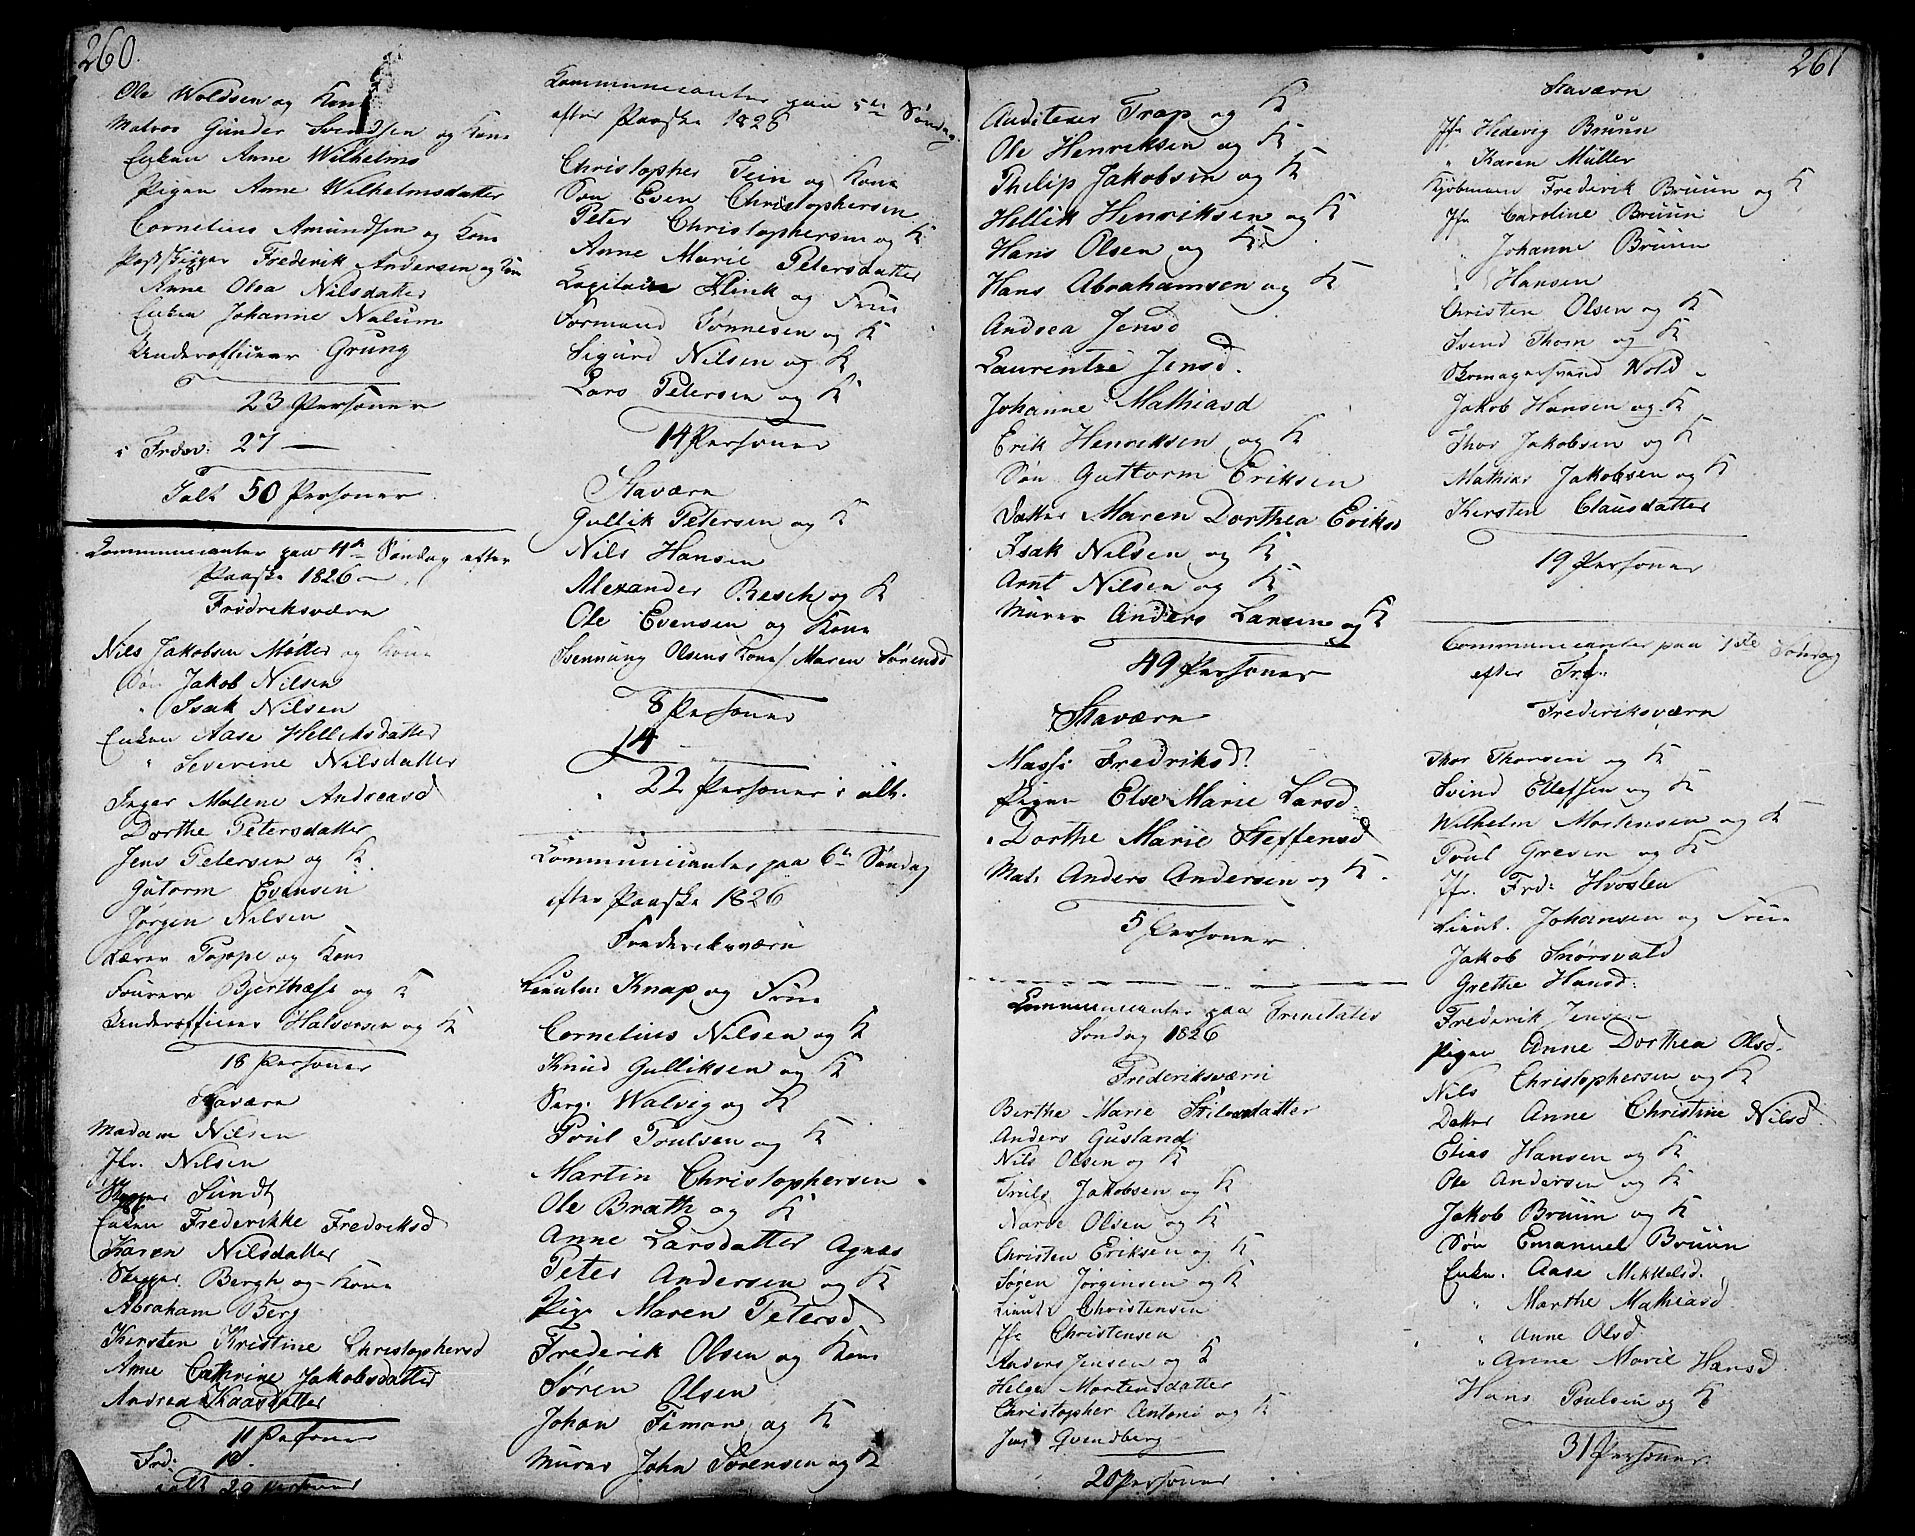 260.
Ole Woldsen og Kone
Matros Gunder Svendsen og Kone
Enken Anne Wilhelms
Pigen Anne Wilhelmsdatter
Cornelius Amundsen og Kone
Frederik Andersen og Kone
Anne Olea Nilsdatter
Enken Johanne Nalum
Underofficeer Grung
23 Personer
i Frdv: 27 —
Talt 50 Personer
Communicanter paa 4de Søndag efter
Paaske 1826 —
Fredriksværn
Nils Jakobsen Møller og Kone
Søn Jakob Nilsen
" Isak Nilsen
Enken Aase Helliksdatter
" Severine Nilsdatter
Inger Malene Andreasd
Dorthe Petersdatter
Jens Petersen og K
Gutorm Evensen
Jørgen Nilsen
Lærer Poppe og Kone
Bjerthæse og K
Underofficeer Halvorsen og K
18 Personer
Staværn
Madam Nilsen
Jfr. Nilsen
Skipper Sundt
Enken Frederikke Fredriksd
Karen Nilsdatter
Skipper Bergh og Kone
Abraham Berg
Kersten Kristine Christophersd
Anne Cathrine Jakobsdatter
Andrea Kaasdatter
11 Personer
Frd: 18
Talt 29 Personer
Communicanter paa 5te Søndag
efter Paaske 1826
Christopher Tein og Kone
Søn Even Christophersen
Peter Christophersen og K
Anne Marie Petersdatter
Capitain Klinck og Frue
Formand Tønnesen og K
Sigurd Nilsen og K
Lars Petersen og K
14 Personer
Staværn
Gullik Petersen og K
Nils Hansen
Alexander Resch og K
Ole Evensen og Kone
Svennung Olsens Kone / Maren Sørensd
8 Personer
14
22 Personer i alt.
Communicanter paa 6te Søndag
efter Paaske 1826
Frederiksværn
Lieuten: Knap og Frue
Cornelius Nilsen og K
Knud Gulliksen og K
Serg: Walvig og K
Poul Poulsen og K
Martin Christophersen
Ole Brath og K
Anne Larsdatter Agnæs
Peter Andersen og K
Pige Maren Petersd
Frederik Olsen og Kone
Søren Olsen
Johan Timan og K
Murer John Sørensen og K
261
Auditeur Trap og K
Ole Henriksen og K
Philip Jakobsen og K
Hellik Henriksen og K
Hans Olsen og K
Hans Abrahamsen og K
Andrea Jensd
Laurentze Jensd.
Johanne Mathiasd
Erik Henriksen og K
Søn Guttorm Eriksen
Datter Maren Dorthea Eriksd
Isak Nilsen og K
Arnt Nilsen og K
Murer Anders Larsen og K
49 Personer
Staværn
Massi Fredriksd
Pigen Else Marie Larsd
" Dorthe Marie Steffensd
Mat: Anders Andersen og K.
5 Personer
Communicanter paa Trinitatis
Søndag 1826
Frederiksværn
Berthe Marie datter
Anders Gusland
Nils Olsen og K
Truls Jakobsen og K
Narve Olsen og K
Christen Eriksen og K
Søgen Jørgensen og K
Lieut: Christensen
Jfr Christensen
Anders Jensen og K
Helge Mortensdatter
Christopher Antoni og K
Jens Qvendberg
20 Personer
Staværn
Jfr Hedevig Bruun
" Karen Müller
Kjøbmann Frederik Bruun og K
Jfr Caroline Bruun
" Johanne Bruun
" Hansen
Christen Olsen og K
Svend Thorn og K
Skomagersvend Wold
Jakob Hansen og K
Thor Jakobsen og K
Mathias Jakobsen og K
Kersten Clausdatter
19 Personer
Communicanter paa 1ste Søndag
efter Trf:
Frederiksværn
Thor Thorsen og K
Svend Ellefsen og K
Wilhelm Mortensen og K
Poul Gresen og K
Jfr. Frd: Hvoslen
Lieut. Johansen og Frue
Jakob Snørsvald
Grethe Hansd:
Frederik Jensen
Pigen Anne Dorthea Olsd.
Nils Christophersen og K
Datter Anne Christine Nilsd.
Elias Hansen og K
Ole Andersen og K
Jakob Bruun og K
Søn Emanuel Bruun
Enkn. Aase Mikkelsd.
" Marthe Mathiasd
" Anne Olsd.
" Anne Marie Hansd.
Hans Poulsen og K
31 Personer